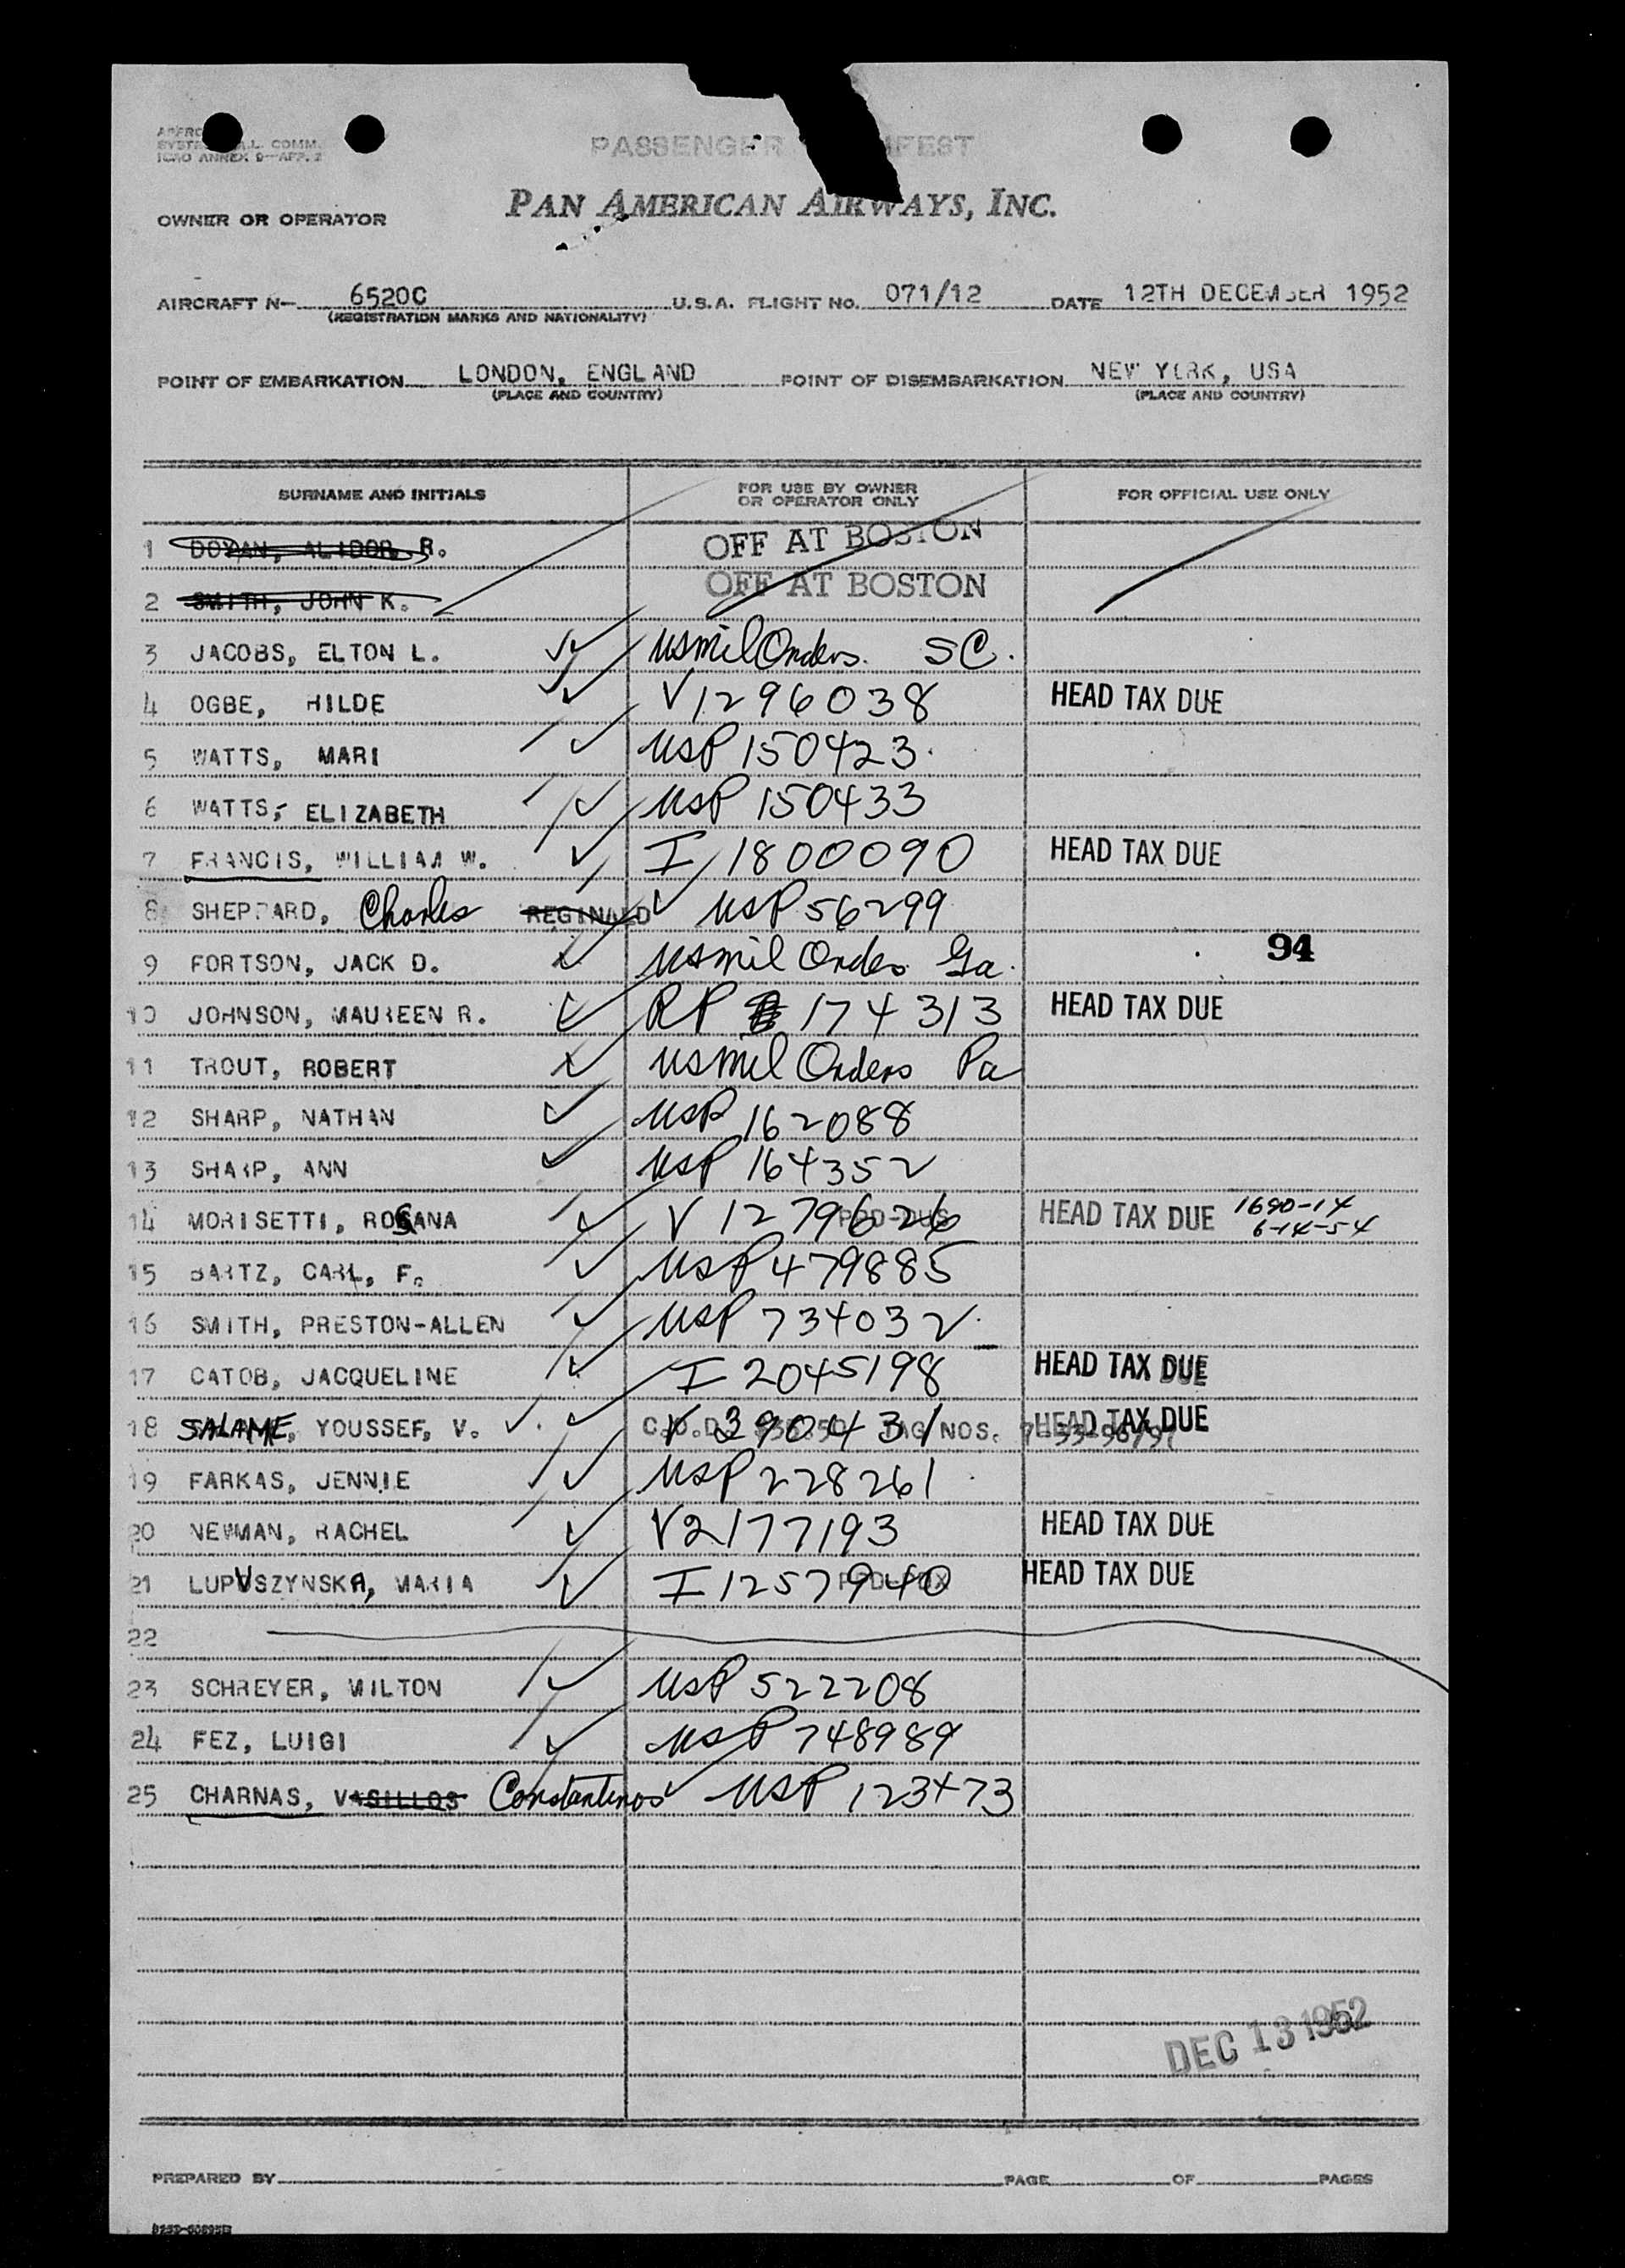 PASSENGER
PAN AMERICAN AIRWAYS, INC.
OWNER OR OPERATOR
AIRCRAFT N— 6520C U.S.A. FLIGHT NO. 071/12 DATE 12TH DECEMBER 1952
(REGISTRATION MARKS AND NATIONALITY)
POINT OF EMBARKATION LONDON, ENGLAND POINT OF DISEMBARKATION NEW YORK, USA
(PLACE AND COUNTRY) (PLACE AND COUNTRY)
SURNAME AND INITIALS FOR USE BY OWNER OR OPERATOR ONLY FOR OFFICIAL USE ONLY
1 ALIDOR, R. OFF AT BOSTON
2 SMITH, JOHN K. OFF AT BOSTON
3 JACOBS, ELTON L. USmil Orders. SC.
4 OGBE, HILDE V1296038 HEAD TAX DUE
5 WATTS, MARI USP 150423.
6 WATTS, ELIZABETH USP 150433
7 FRANCIS, WILLIAM W. I 1800090 HEAD TAX DUE
8 SHEPPARD, Charles REGINALD USP 56299
9 FORTSON, JACK D. USmil Orders Ga. 94
10 JOHNSON, MAUREEN R. RP 174313 HEAD TAX DUE
11 TROUT, ROBERT USmil Orders Pa
12 SHARP, NATHAN USP 162088
13 SHARP, ANN USP 164352
14 MORISETTI, ROSANA V 1279626 HEAD TAX DUE 1690-14
6-14-54
15 BARTZ, CARL, F. USP 479885
16 SMITH, PRESTON-ALLEN USP 734032.
17 CATOB, JACQUELINE I 2045198 HEAD TAX DUE
18 SALAME, YOUSSEF, V. V 390431 TAG NOS. HEAD TAX DUE
19 FARKAS, JENNIE USP 228261
20 NEWMAN, RACHEL V2177193 HEAD TAX DUE
21 LUPUSZYNSKA, MARIA I 1257940 HEAD TAX DUE
22
23 SCHREYER, MILTON USP 522208
24 FEZ, LUIGI USP 748989
25 CHARNAS, VASILLOS Constantinos USP 123473
DEC 13 1952
PREPARED BY PAGE OF PAGES